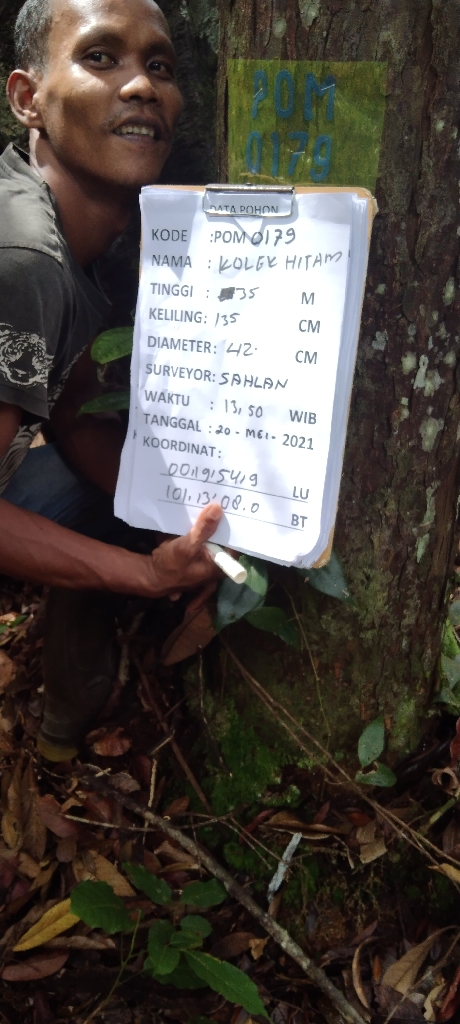 POM
0179
DATA POHON
KODE :POM 0179
NAMA : KOLEK HITAM
TINGGI : 35 M
KELILING: 135 CM
DIAMETER: 42 CM
SURVEYOR: SAHLAN
WAKTU : 13,50 WIB
TANGGAL : 20 - MEI - 2021
KOORDINAT:
00.19.54.9 LU
101.13.08.0 BT